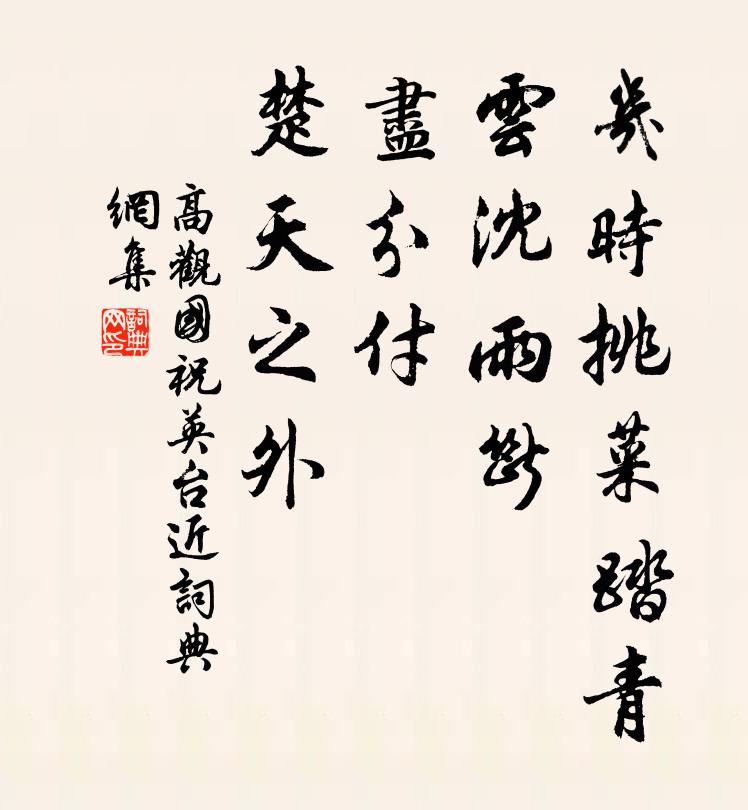 幾時挑菜踏青
雲沈雨斷
盡分付
楚天之外
高觀國祝英台近詞典
網集
詞典
网印